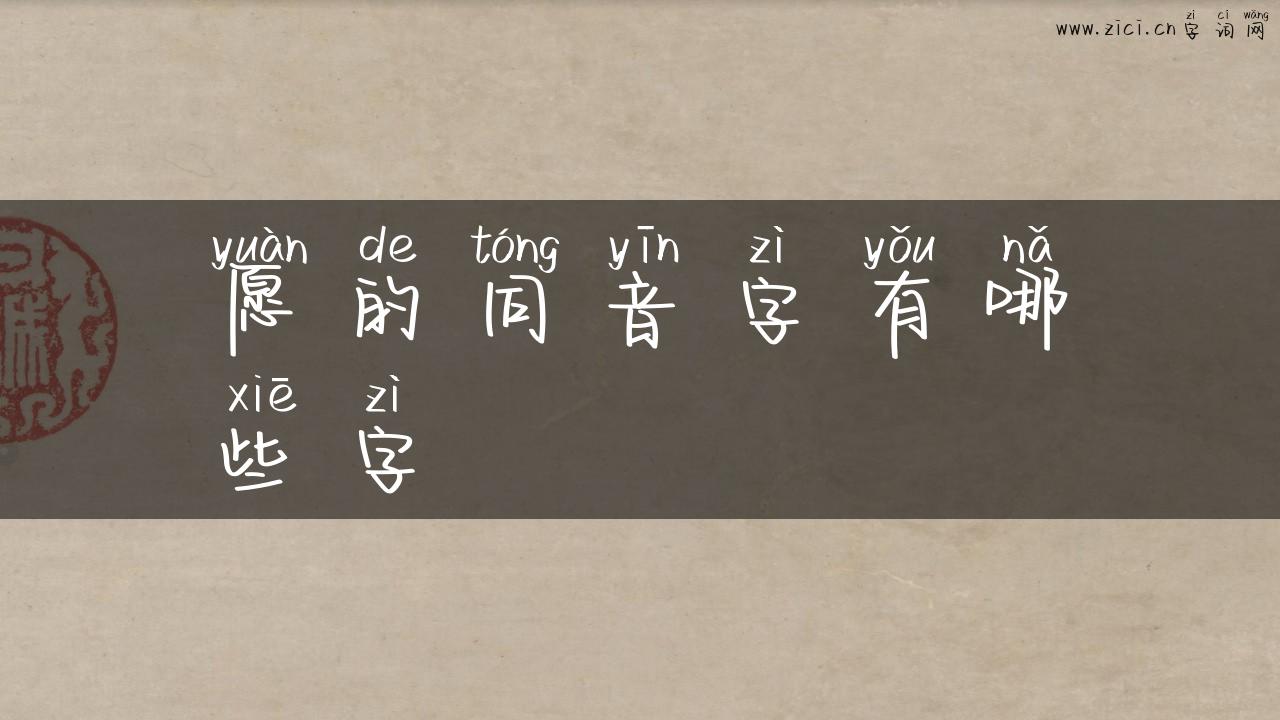 zì cí wǎng
www.zici.cn 字词网
yuàn de tóng yīn zì yǒu nǎ
愿的同音字有哪
xiē zì
些字